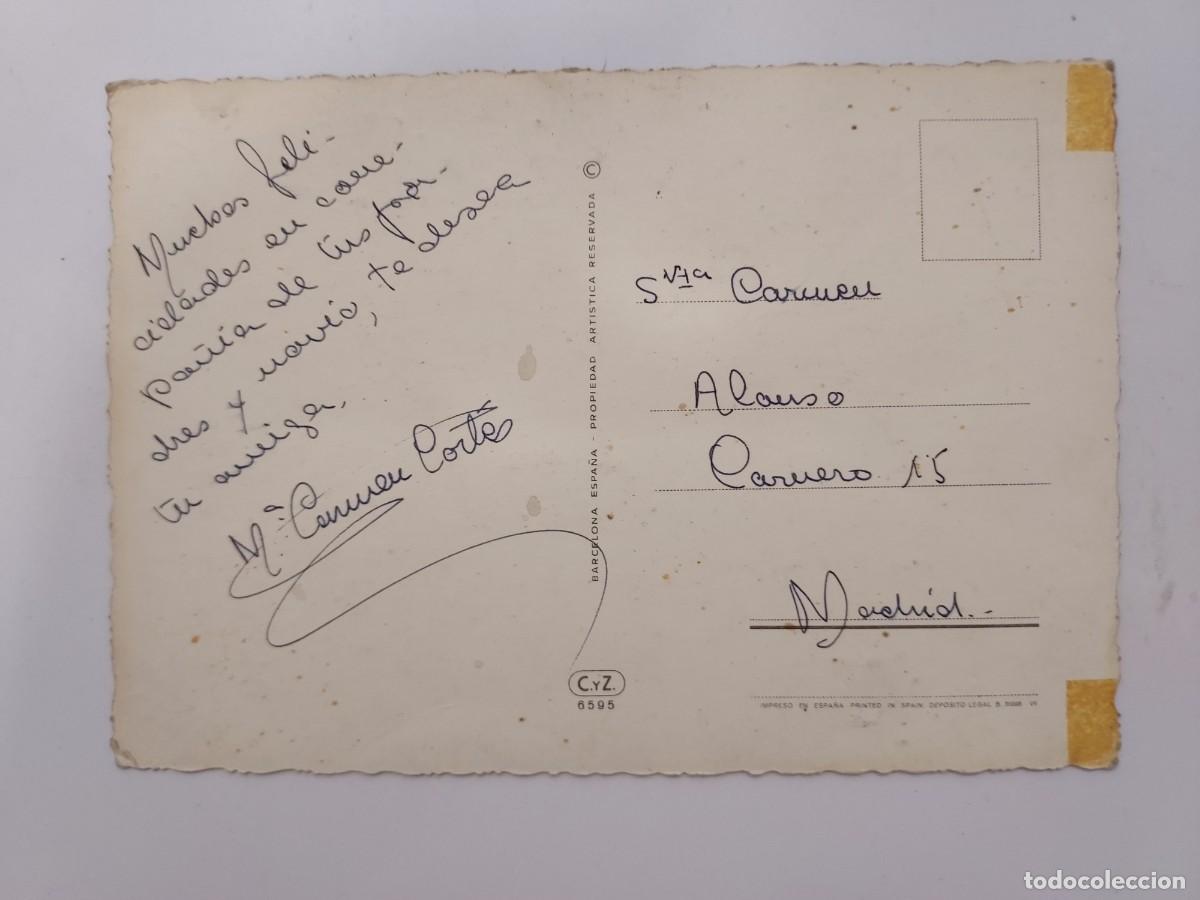 Muchas feli-
cidades en com-
pañia de tus pa-
dres y novio, te desea
tu amiga,
Mª. Carmen Cortés
BARCELONA ESPAÑA - PROPIEDAD ARTISTICA RESERVADA ©
C.YZ.
6595
Srta Carmen
Alonso
Carnero 15
Madrid.-
IMPRESO EN ESPAÑA PRINTED IN SPAIN. DEPOSITO LEGAL B.
todocoleccion